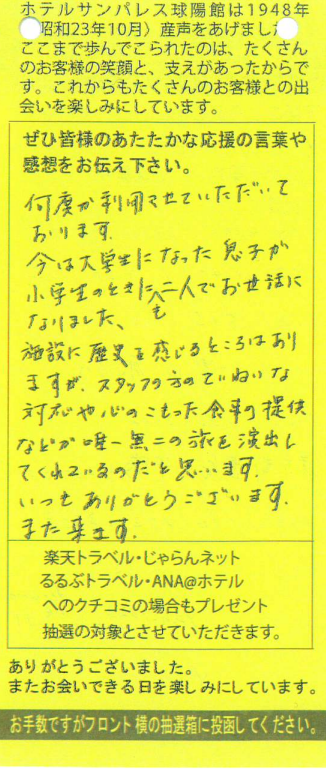 ホテルサンパレス球陽館は1948年
昭和23年10月）産声をあげました
ここまで歩んでこられたのは、たくさん
のお客様の笑顔と、支えがあったからで
す。これからもたくさんのお客様との出
会いを楽しみにしています。
ぜひ皆様のあたたかな応援の言葉や
感想をお伝え下さい。
何度か利用させていただいて
おります。
今は大学生になった息子が
小学生のときに二人でお世話に
も
なりました、
施設に歴史を感じるところはあり
ますが、スタッフの方のていねいな
対応や心のこもった食事の提供
などが唯一無二の旅を演出し
てくれているのだと思います。
いつもありがとうございます。
また来ます。
楽天トラベル・じゃらんネット
るるぶトラベル・ANA@ホテル
へのクチコミの場合もプレゼント
抽選の対象とさせていただきます。
ありがとうございました。
またお会いできる日を楽しみにしています。
お手数ですがフロント横の抽選箱に投函してください。